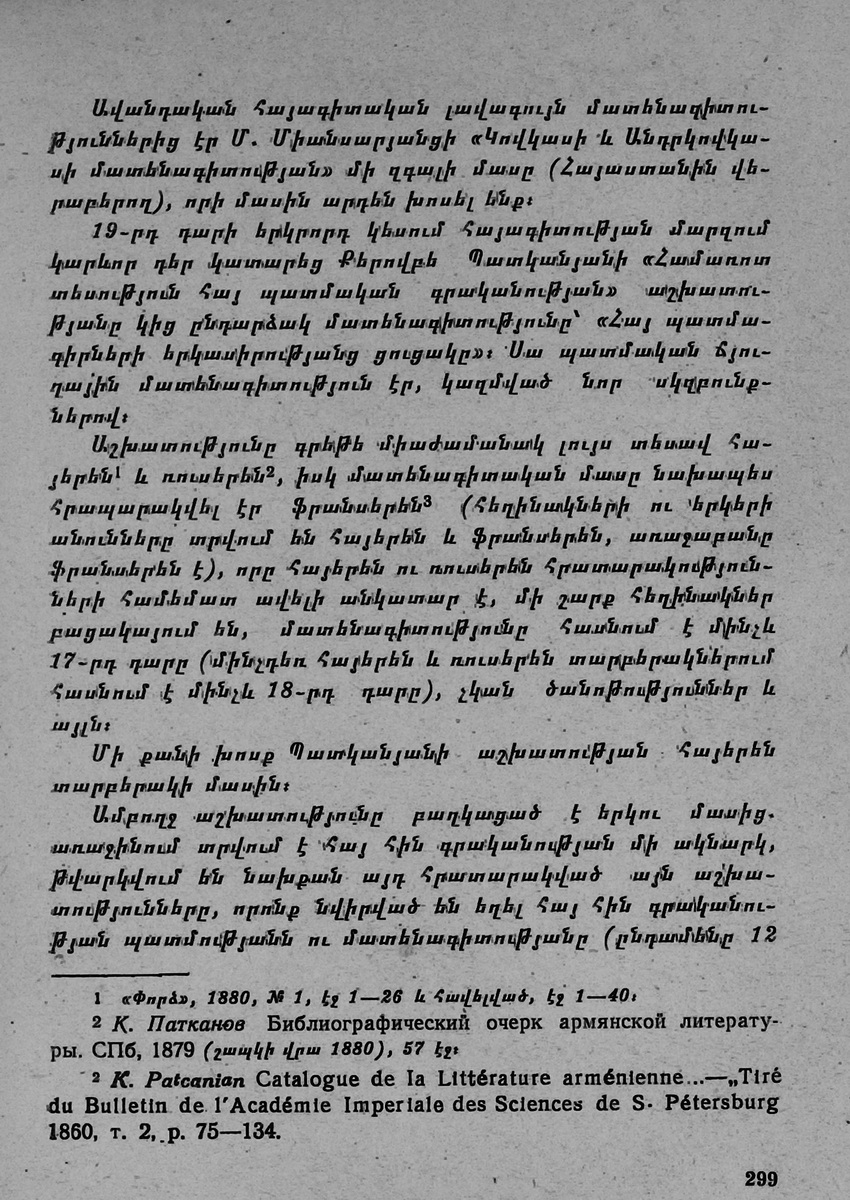 Ավանդական հայագիտական լավագույն մատենագիտու-
թյուններից էր Մ. Միանսարյանցի «Կովկասի և Անդրկովկա-
սի մատենագիտության» մի զգալի մասը (Հայաստանին վե-
րաբերող), որի մասին արդեն խոսել ենք։
19-րդ դարի երկրորդ կեսում հայագիտության մարզում
կարևոր դեր կատարեց Քերովբե Պատկանյանի «Համառոտ
տեսություն հայ պատմական գրականության» աշխատու-
թյանը կից ընդարձակ մատենագիտությունը՝ «Հայ պատմա-
գիրների երկասիրությանց ցուցակը»։ Սա պատմական ճյու-
ղային մատենագիտություն էր, կազմված նոր սկզբունք-
ներով։
Աշխատությունը գրեթե միաժամանակ լույս տեսավ հա-
յերեն¹ և ռուսերեն², իսկ մատենագիտական մասը նախապես
հրապարակվել էր ֆրանսերեն³ (հեղինակների ու երկերի
անունները տրվում են հայերեն և ֆրանսերեն, առաջաբանը
ֆրանսերեն է), որը հայերեն ու ռուսերեն հրատարակություն-
ների համեմատ ավելի անկատար է, մի շարք հեղինակներ
բացակայում են, մատենագիտությունը հասնում է մինչև
17-րդ դարը (մինչդեռ հայերեն և ռուսերեն տարբերակներում
հասնում է մինչև 18-րդ դարը), չկան ծանոթություններ և
այլն։
Մի քանի խոսք Պատկանյանի աշխատության հայերեն
տարբերակի մասին։
Ամբողջ աշխատությունը բաղկացած է երկու մասից.
առաջինում տրվում է հայ հին գրականության մի ակնարկ,
թվարկվում են նախքան այդ հրատարակված այն աշխա-
տությունները, որոնք նվիրված են եղել հայ հին գրականու-
թյան պատմությանն ու մատենագիտությանը (ընդամենը 12
1 «Փորձ», 1880, № 1, էջ 1—26 և հավելված, էջ 1—40։
2 К. Патканов Библиографический очерк армянской литерату-
ры. СПб, 1879 (շապկի վրա 1880), 57 էջ։
2 K. Patcanian Catalogue de la Littérature arménienne...—„Tiré
du Bulletin de l'Académie Imperiale des Sciences de S. Pétersburg
1860, т. 2, p. 75—134.
299